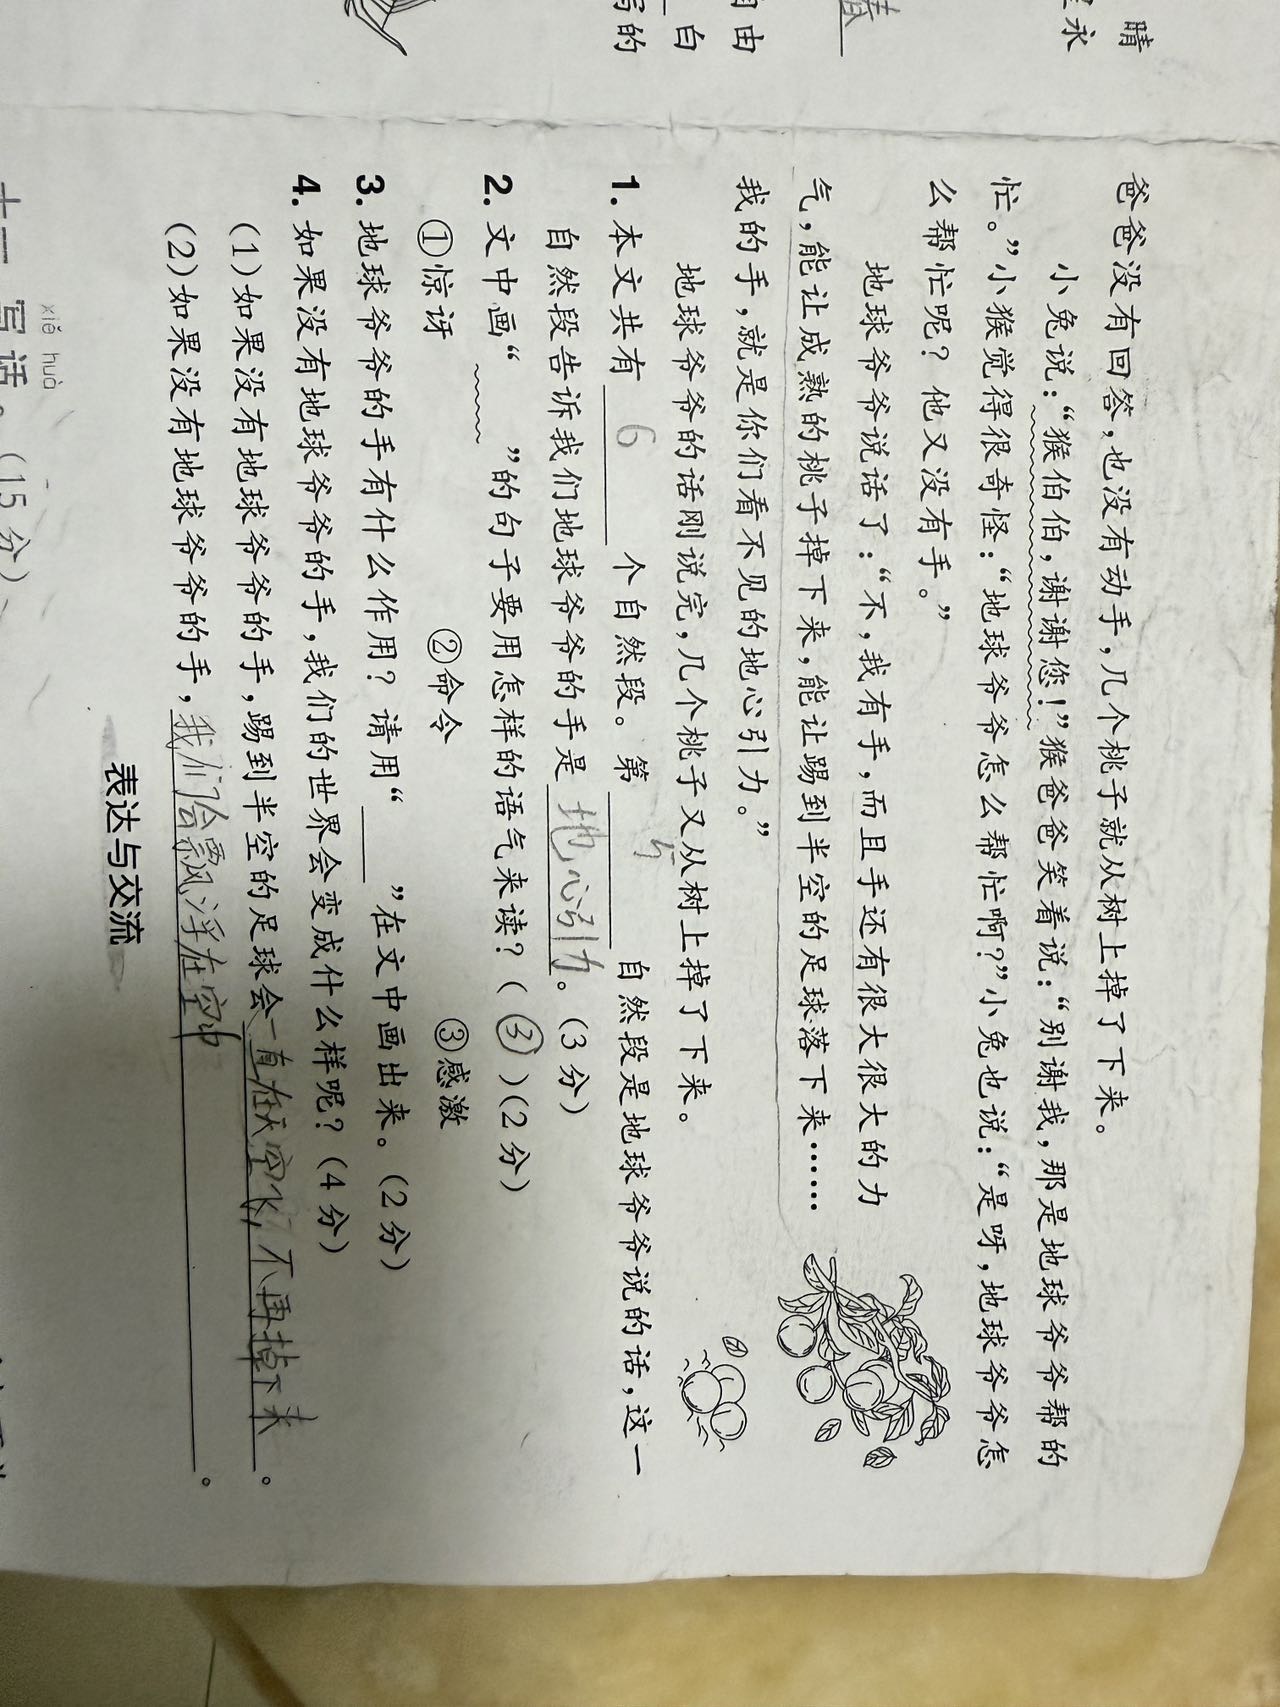 晴
永
由
白
的
爸爸没有回答,也没有动手,几个桃子就从树上掉了下来。
小兔说:“猴伯伯,谢谢您!”猴爸爸笑着说:“别谢我,那是地球爷爷帮的
忙。”小猴觉得很奇怪:“地球爷爷怎么帮忙啊?”小兔也说:“是呀,地球爷爷怎
么帮忙呢?他又没有手。”
地球爷爷说话了:“不,我有手,而且手还有很大很大的力
气,能让成熟的桃子掉下来,能让踢到半空的足球落下来……
我的手,就是你们看不见的地心引力。”
地球爷爷的话刚说完,几个桃子又从树上掉了下来。
1.本文共有 6 个自然段。第 5 自然段是地球爷爷说的话,这一
自然段告诉我们地球爷爷的手是 地心引力。(3分)
2.文中画“﹏﹏”的句子要用怎样的语气来读?(③)(2分)
①惊讶 ②命令 ③感激
3.地球爷爷的手有什么作用?请用“____”在文中画出来。(2分)
4.如果没有地球爷爷的手,我们的世界会变成什么样呢?(4分)
(1)如果没有地球爷爷的手,踢到半空的足球会一直在天空飞,不再掉下来。
(2)如果没有地球爷爷的手,我们会飘浮在空中。
表达与交流
xiě huà
十一 写话。(15分)